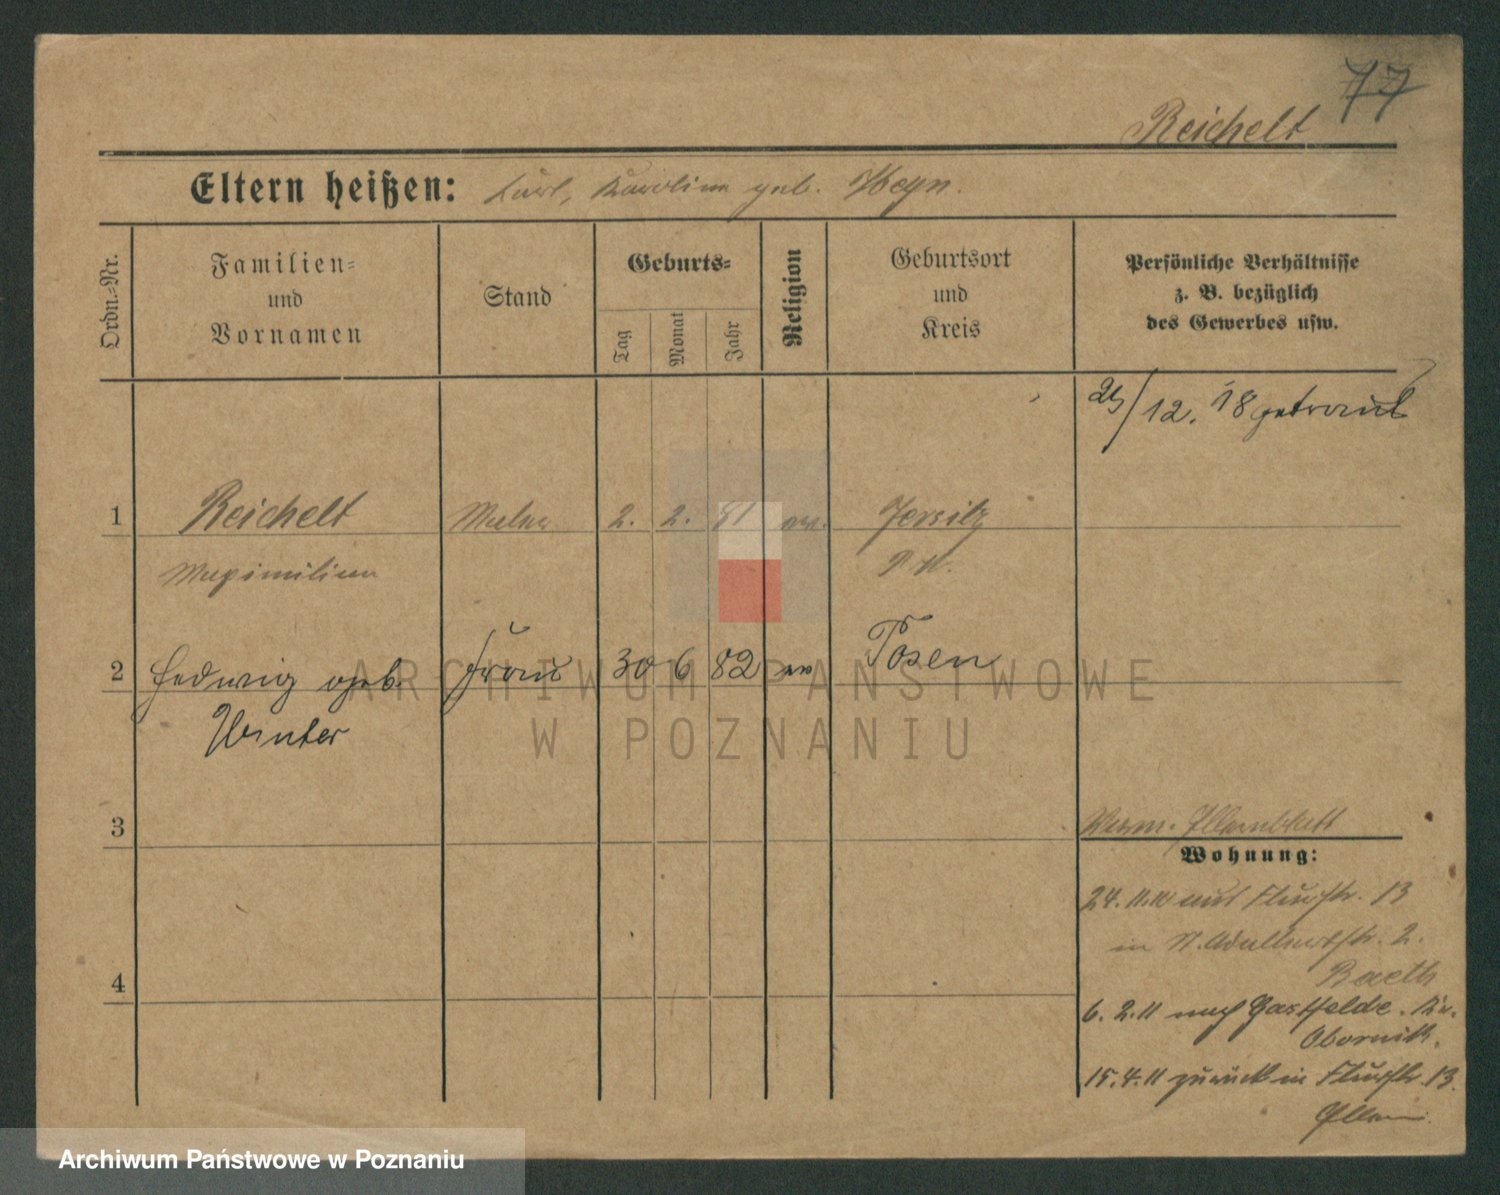 77
Reichelt
Eltern heißen: Karl, Karolina geb. Heyn.
Ordn.-Nr.
Familien-
und
Vornamen
Stand
Geburts-
Tag
Monat
Jahr
Religion
Geburtsort
und
Kreis
Persönliche Verhältnisse
z. B. bezüglich
des Gewerbes usw.
/12. 18 getraut
1 Reichelt Maler 2. 2. 81 ev. Jersitz
Maximilian P. K.
2 Hedwig geb. Frau 30 6 82 ev Posen
Winter
3
Elternblatt
Wohnung:
24. 11. aus Flurstr. 13
in St. Adalbertstr. 2.
6. 2. 11 nach Gastfelde. Kr.
Obornik.
15. 4. 11 zurück in Flurstr. 13.
Eltern
4
ARCHIWUM PAŃSTWOWE
W POZNANIU
Archiwum Państwowe w Poznaniu